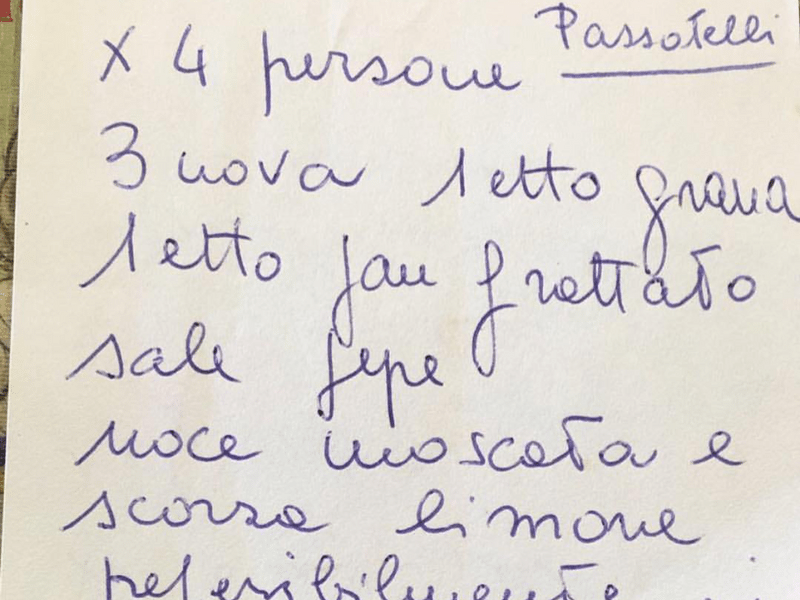 Passatelli
x 4 persone
3 uova 1 etto grana
1 etto pan grattato
sale pepe
noce moscata e
scorza limone